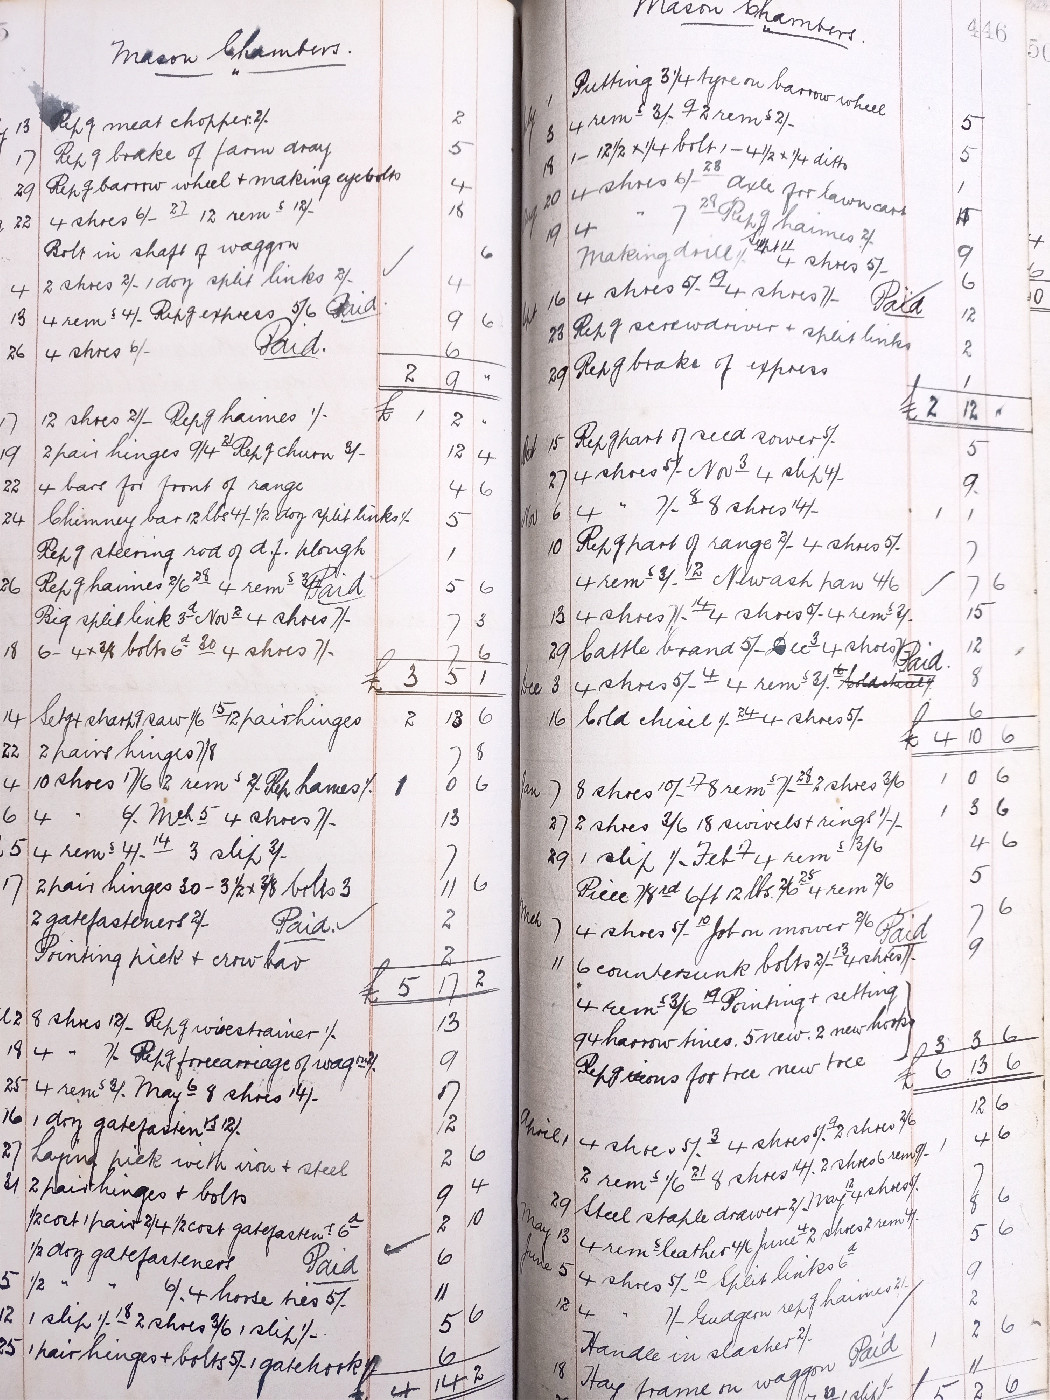 Mason Chambers.
13 Rep'g meat chopper 2/- 2
17 Rep'g brake of farm dray 5
29 Rep'g barrow wheel + making eyebolts 4
22 4 shoes 6/- 27 12 rem s 12/- 18
Bolt in shaft of waggon 6
4 2 shoes 2/- 1 doz split links 2/- 4
13 4 rem s 4/- Rep'g express 5/6 Paid 9 6
26 4 shoes 6/- Paid. 6
2 9 "
17 12 shoes 21/- Rep'g haimes 1/- £ 1 2 "
19 2 pair hinges 9/4 21 Rep'g churn 3/- 12 4
22 4 bars for front of range 4 6
24 Chimney bar 12 lbs 4/- 1/2 doz split links 1/- 5
Rep'g steering rod of d.f. plough 1
26 Rep'g haimes 2/6 28 4 rem s 3/- Paid 5 6
Big split link 3d Nov 2 4 shoes 7/- 7 3
18 6 - 4 x 3/8 bolts 6d 30 4 shoes 7/- 7 6
£ 3 5 1
14 Setg + sharp'g saw 1/6 15 12 pair hinges 2 13 6
22 2 pairs hinges 7/8 7 8
4 10 shoes 17/6 2 rem s 2/- Rep hames 1/- 1 0 6
6 4 " 6/- Mch 5 4 shoes 7/- 13
5 4 rem s 4/- 14 3 slip 3/- 7
17 2 pair hinges 30 - 3 1/2 x 3/8 bolts 3 11 6
2 gatefasteners 2/- Paid. 2
Pointing pick + crow bar 2
£ 5 17 2
12 8 shoes 12/- Rep'g wirestrainer 1/- 13
18 4 " 7/- Rep'g forecarriage of wagon 2/- 9
25 4 rem s 3/- May 6 8 shoes 14/- 17
16 1 doz gatefasten rs 12/- 12
27 Laying pick with iron + steel 2 6
31 2 pair hinges + bolts 9 4
1/2 cost 1 pair 2/4 1/2 cost gatefasten r 6d 2 10
1/2 doz gatefasteners Paid 6
5 1/2 " " 6/- 4 horse ties 5/- 11
12 1 slip 1/- 18 2 shoes 3/6 1 slip 1/- 5 6
25 1 pair hinges + bolts 5/- 1 gatehook 1/- 6
4 14 2
Mason Chambers.
446
1 Putting 3 1/4 tyre on barrow wheel
3 4 rem s 3/- 9 2 rem s 2/- 5
18 1 - 12 1/2 x 1/4 bolt 1 - 4 1/2 x 1/4 ditto 5
20 4 shoes 6/- 28 axle for lawn cart 1
19 4 " 7 28 Rep'g haimes 2/-
Making drill 1/- 4 shoes 5/- 9
16 4 shoes 5/- 19 4 shoes 7/- Paid 6
23 Rep'g screwdriver + split links 12
29 Rep'g brake of express 2
1
£ 2 12 "
Oct 15 Rep'g part of seed sower 5/- 5
27 4 shoes 5/- Nov 3 4 slip 4/- 9
Nov 6 4 " 7/- 8 8 shoes 14/- 1 1
10 Rep'g part of range 2/- 4 shoes 5/- 7
4 rem s 3/- 12 New ash pan 4/6 7 6
13 4 shoes 7/- 14 4 shoes 5/- 4 rem s 3/- 15
29 Cattle brand 5/- Dec 3 4 shoes 7/- Paid. 12
Dec 3 4 shoes 5/- 4 4 rem s 3/- 8
16 Cold chisel 1/- 24 4 shoes 5/- 6
£ 4 10 6
Jan 7 8 shoes 10/- 17 8 rem s 7/- 28 2 shoes 3/6 1 0 6
27 2 shoes 3/6 18 swivels + rings 1 3 6
29 1 slip 1/- Feb 7 4 rem s 3/6 4 6
Piece 7/8 rd 6ft 12 lbs. 2/6 28 4 rem 2/6 5
Mch 7 4 shoes 5/- 10 Job on mower 2/6 Paid 7 6
11 6 countersunk bolts 2/- 13 4 shoes 7/- 9
4 rem s 3/6 19 Pointing + setting
94 harrow tines. 5 new. 2 new hooks
Rep'g irons for tree new tree 3 3 6
£ 6 13 6
April 1 4 shoes 5/- 3 4 shoes 5/- 9 2 shoes 2/6 12 6
2 rem s 1/6 21 8 shoes 14/- 2 shoes 6 rem 9/- 1 4 6
29 Steel staple drawer 2/- May 2 4 shoes 5/- 7
May 13 4 rem s leather 4/6 June 4 2 shoes 2 rem 4/- 8 6
June 5 4 shoes 5/- 10 Split links 6d 5 6
12 4 " 7/- Gudgeon rep'g haimes 2/- 9
Handle in slasher 2/- 2
18 Hay frame on waggon Paid 1 2 6
11
5 2 6